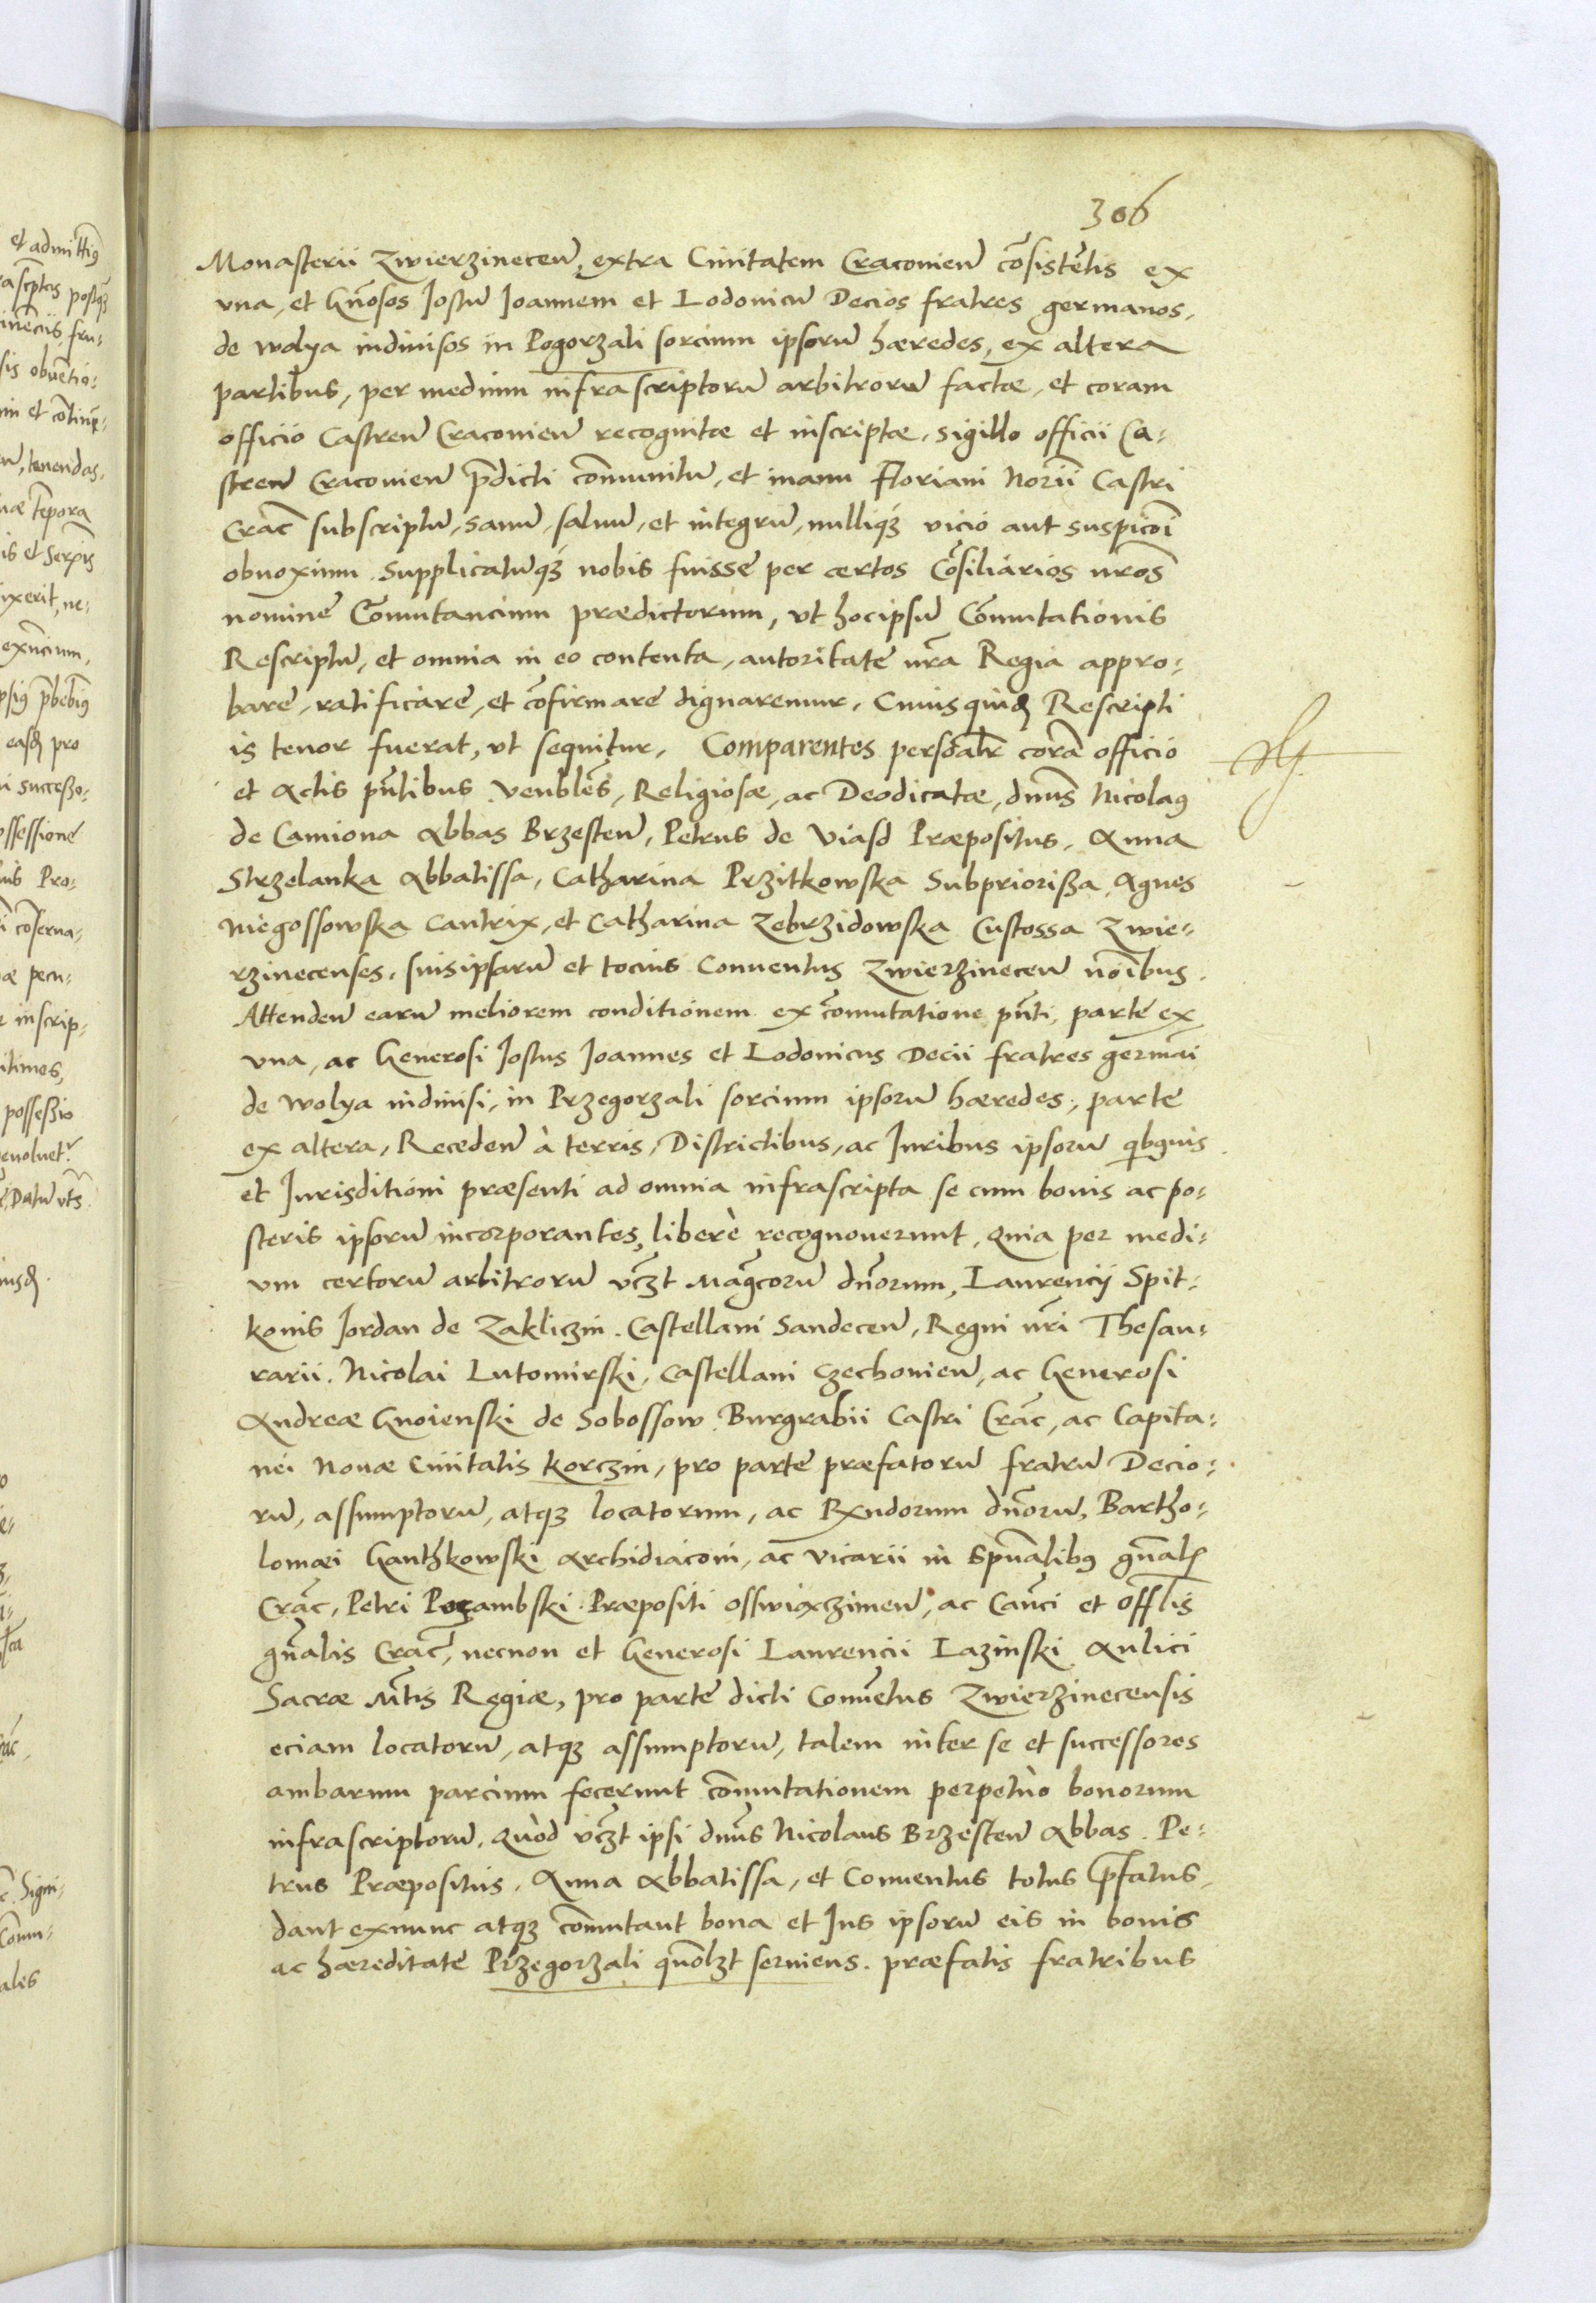 306
Monasterii Zwierzinecen̄, extra Ciuitatem Cracovien̄ cōsistētis ex
vna, et Gn̄osos Jostū Joannem et Lodouicū Decios fratres germanos,
de wolya indiuisos in Pogorzali sorcium ipsorū hæredes, ex altera
partibus, per medium infrascriptorū arbitrorū factæ, et coram
officio Castren̄ Cracouien̄ recognitæ et inscriptæ, sigillo officii Ca-
stren̄ Cracouien̄ p̄dicti com̄unitū, et manu Floriani Norii Castri
Crac̄ subscriptū, sanū, saluū, et integrū, nulliqꝫ vicio aut suspicōi
obnoxium. Supplicatūqꝫ nobis fuisse per certos Cōsiliarios nr̄os
nomine Com̄utancium prædictorum, vt hocipsū Com̄utationis
Rescriptū, et omnia in eo contenta, autoritate nr̄a Regia appro-
bare, ratificare, et cōfirmare dignaremur. Cuiusquidꝫ Rescripti
is tenor fuerat, vt sequitur. Comparentes personalr̄ corā officio
et Actis pn̄tibus Venbles, Religiosæ, ac Deodicatæ, dn̄us Nicolaꝰ
de Camiona Abbas Brzesten̄, Petrus de Viasd Præpositus, Anna
Strzelanka Abbatissa, Catharina Przitkowska Subpriorißa, Agnes
Niegossowska Cantrix, et Catharina Zebrzidowska Custossa Zwie-
rzinecenses, suisipsarū et tocius Conuentus Zwierzinecen̄ nōibus.
Attenden̄ earū meliorem conditionem ex com̄utatione pn̄ti, parte ex
vna, ac Generosi Jostus Joannes et Lodouicus Decii fratres germāi
de wolya indiuisi, in Przegorzali sorcium ipsorū hæredes, parte
ex altera, Receden̄ à terris, Districtibus, ac Juribus ipsorū qbꝰuis
et Jurisditioni præsenti ad omnia infrascripta se cum bonis ac po-
steris ipsorū incorporantes, liberè recognouerunt, Quia per medi-
um certorū arbitrorū vcꝫt Magcorū dn̄orum, Laurencij Spit-
konis Jordan de Zakliczin. Castellani Sandecen̄, Regni nr̄i Thesau-
rarii. Nicolai Lutomirski, Castellani Czechouien̄, ac Generosi
Andreæ Gnoienski de Sobossow Burgrabii Castri Crac̄, ac Capita-
nei Nouæ Ciuitatis Korczin, pro parte præfatorū fratrū Decio-
rū, assumptorū, atqꝫ locatorum, ac Rx̄ndorum dn̄orū, Bartho-
lomæi Ganthkowski Archidiaconi, ac Vicarii in Spūalibꝰ gn̄alis
Crac̄, Petri Pozambski Præpositi Osswiaczimen̄, ac Can̄ci et Offlis
gn̄alis Crac̄, necnon et Generosi Laurencii Lazinski Aulici
Sacræ Mtis Regiæ, pro parte dicti Conuētus Zwierzinecensis
eciam locatorū, atqꝫ assumptorū, talem inter se et successores
ambarum parcium fecerunt com̄utationem perpetuò bonorum
infrascriptorū. Quòd vcꝫt ipsi dn̄us Nicolaus Brzesten̄ Abbas. Pe-
trus Præpositus. Anna Abbatissa, et Conuentus totus p̄fatus,
dant exnunc atqꝫ com̄utant bona et Jus ipsorū eis in bonis
ac hæreditate Przegorzali quōlꝫt seruiens. præfatis fratribus